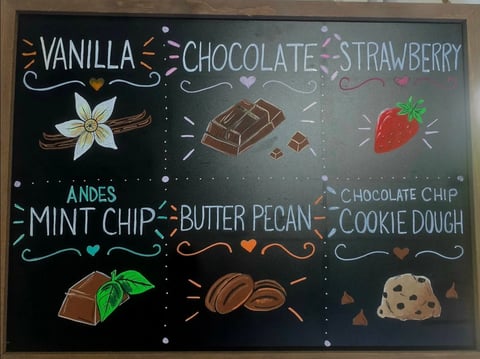 VANILLA
CHOCOLATE
STRAWBERRY
ANDES
MINT CHIP
BUTTER PECAN
CHOCOLATE CHIP
COOKIE DOUGH